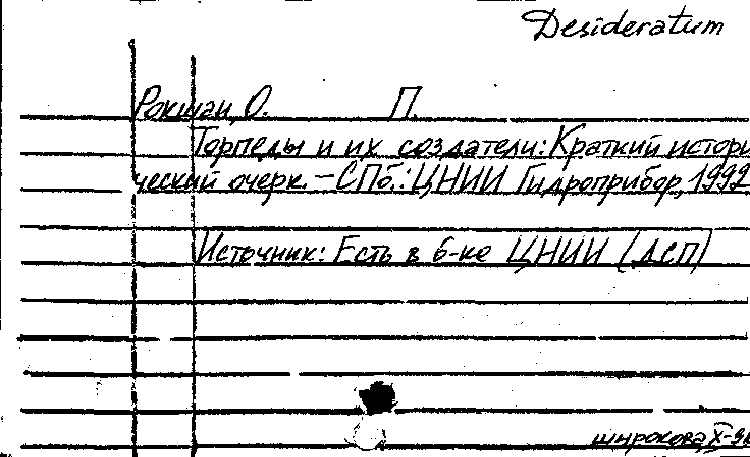 Desideratum
Рокшан, О. П.
Торпеды и их создатели: Краткий истори
ческий очерк. – СПб.: ЦНИИ Гидроприбор, 1992
Источник: Есть в б-ке ЦНИИ (ДСП)
широкова X-96